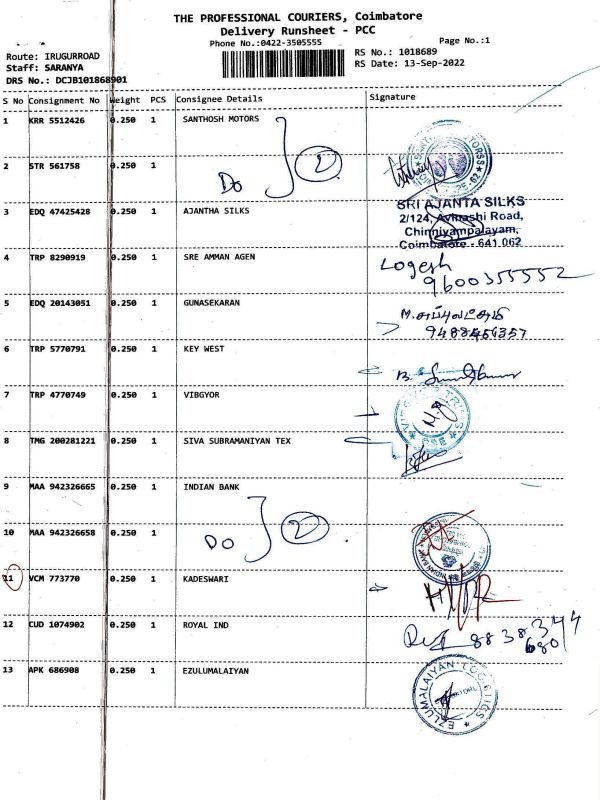 THE PROFESSIONAL COURIERS, Coimbatore
Delivery Runsheet - PCC
Phone No.:0422-3505555
Page No.:1
Route: IRUGURROAD
RS No.: 1018689
Staff: SARANYA
RS Date: 13-Sep-2022
DRS No.: DCJB101868901
S No Consignment No Weight PCS Consignee Details Signature
1 KRR 5512426 0.250 1 SANTHOSH MOTORS
2 STR 561758 0.250 1 Do 2
3 EDQ 47425428 0.250 1 AJANTHA SILKS
SRI AJANTA SILKS
2/124, Avinashi Road,
Chinniyampalayam,
Coimbatore - 641 062
4 TRP 8290919 0.250 1 SRE AMMAN AGEN Logesh
9600355552
5 EDQ 20143051 0.250 1 GUNASEKARAN
6 TRP 5770791 0.250 1 KEY WEST B.
7 TRP 4770749 0.250 1 VIBGYOR
8 TMG 200281221 0.250 1 SIVA SUBRAMANIYAN TEX
9 MAA 942326665 0.250 1 INDIAN BANK
10 MAA 942326658 0.250 1 Do 2
INDIAN BANK
11 VCM 773770 0.250 1 KADESWARI
12 CUD 1074902 0.250 1 ROYAL IND
13 APK 686908 0.250 1 EZULUMALAIYAN
EZLUMALAIYAN LOGISTICS